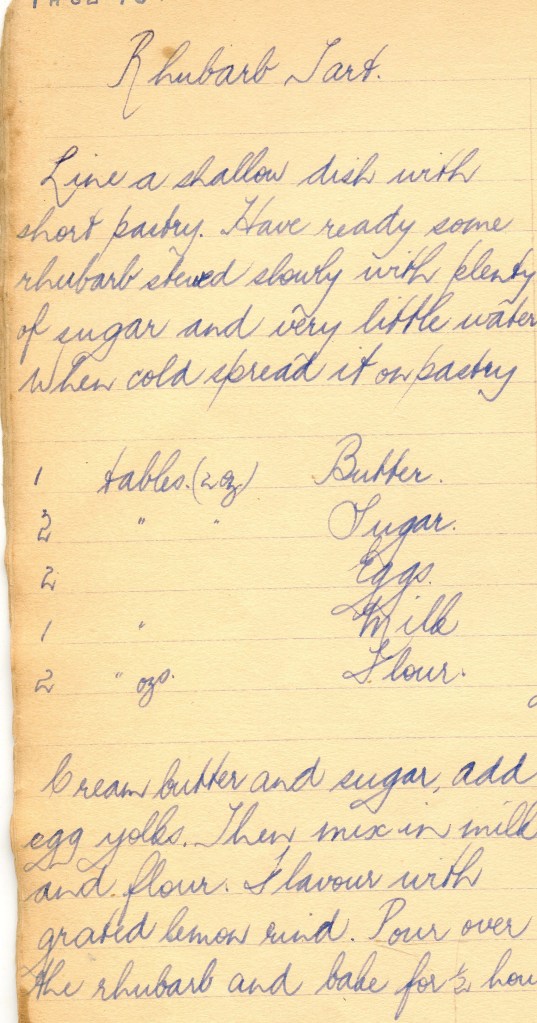 Rhubarb Tart.
Line a shallow dish with
short pastry. Have ready some
rhubarb stewed slowly with plenty
of sugar and very little water
When cold spread it on pastry
1 tables. (2 oz) Butter.
2 " " Sugar.
2 Eggs.
1 " Milk
2 " ozs. Flour.
Cream butter and sugar, add
egg yolks. Then mix in milk
and flour. Flavour with
grated lemon rind. Pour over
the rhubarb and bake for ½ hou